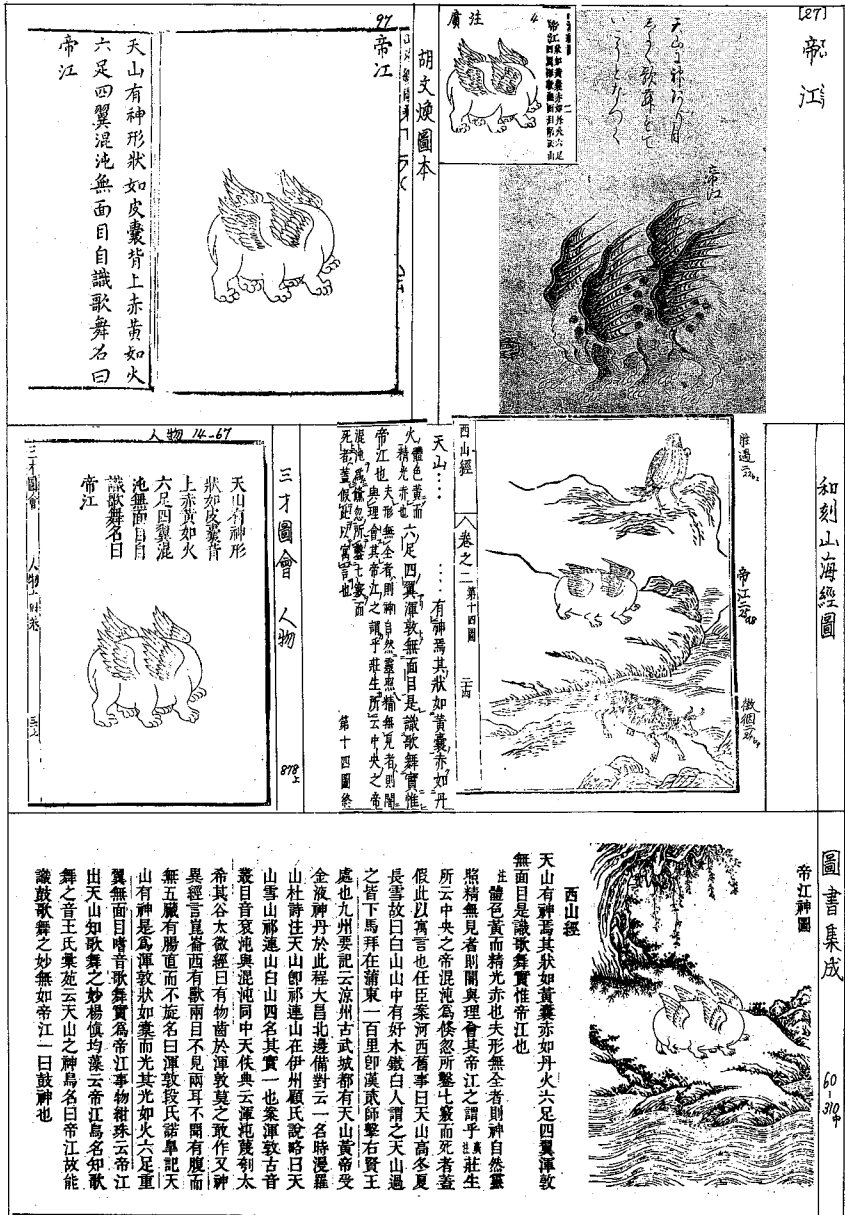 [27]
帝江
天山
帝江
廣注
4
胡文煥圖本
97
帝江
天山有神形狀如皮囊背上赤黃如火
六足四翼混沌無面目自識歌舞名曰
帝江
和刻山海經圖
帝江
西山經
卷之二
第十四圖
天山⋯
⋯有神焉其狀如黃囊赤如丹
火 體色黃而精光赤也 六足四翼渾敦無面目是識歌舞實惟
帝江也 夫形無全者則神自然靈照精無見者則闇與理會其帝江之謂乎莊生所云中央之帝
混沌爲儵忽所鑿七竅而死者蓋假此以寓言也
第十四圖終
三才圖會 人物
878上
人物 14-67
天山有神形
狀如皮囊背
上赤黃如火
六足四翼混
沌無面目自
識歌舞名曰
帝江
三才圖會
圖書集成
60-310中
帝江神圖
西山經
天山有神焉其狀如黃囊赤如丹火六足四翼渾敦
無面目是識歌舞實惟帝江也
註 體色黃而精光赤也夫形無全者則神自然靈
照精無見者則闇與理會其帝江之謂乎 廣註 莊生
所云中央之帝混沌爲倏忽所鑿七竅而死者蓋
假此以寓言也任臣案河西舊事曰天山高冬夏
長雪故曰白山山中有好木鐵白人謂之天山過
之皆下馬拜在蒲東一百里卽漢貳師擊右賢王
處也九州要記云涼州古武城郡有天山黃帝受
金液神丹於此程大昌北邊備對云一名時漫羅
山杜詩注天山卽祁連山在伊州顧氏說略曰天
山雪山祁連山白山四名其實一也案渾敦古音
叢目音袞沌與混沌同中天佚典云渾沌蔑刳太
希其谷太微經曰有物齒於渾敦莫之敢作又神
異經言崑崙西有獸兩目不見兩耳不聞有腹而
無五臟有腸直而不旋名曰渾敦段氏諾皋記天
山有神是爲渾敦狀如橐而光其光如火六足重
翼無面目嗜音歌舞實爲帝江事物紺珠云帝江
出天山知歌舞之妙楊愼均藻云帝江鳥名知歌
舞之音王氏彙苑云天山之神鳥名曰帝江故能
識鼓歌舞之妙無如帝江一曰鼓神也